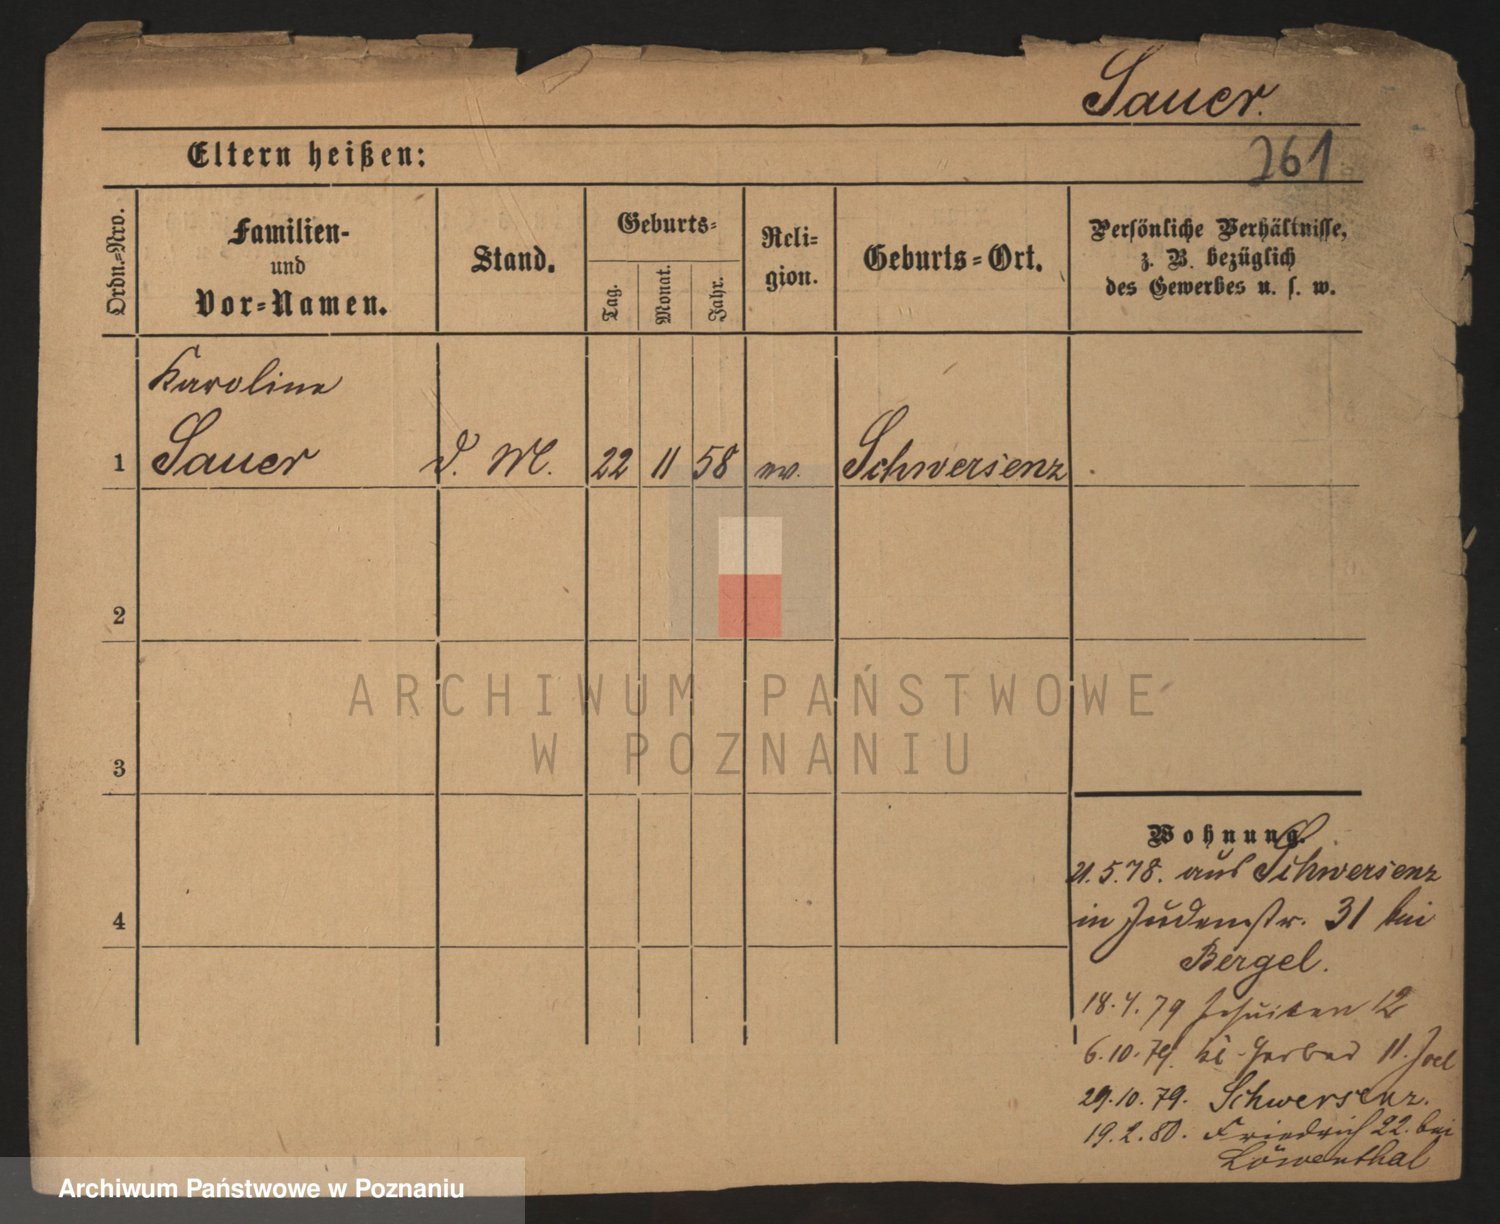 Sauer.
261
Eltern heißen:
Ordn.-Nro.
Familien-
und
Vor-Namen.
Stand.
Geburts-
Tag.
Monat.
Jahr.
Reli-
gion.
Geburts-Ort.
Persönliche Verhältnisse,
z. B. bezüglich
des Gewerbes u. s. w.
Karoline
1 Sauer d. M. 22 11 58 ev. Schwersenz
2
3
4
Wohnung.
21.5.78. aus Schwersenz
in Judenstr. 31 bei
Bergel.
18.4.79 Jesuiten 12
6.10.79. kl. Gerber 11. Joel
29.10.79. Schwersenz.
19.2.80. Friedrich 22. bei
Löwenthal
ARCHIWUM PAŃSTWOWE
W POZNANIU
Archiwum Państwowe w Poznaniu